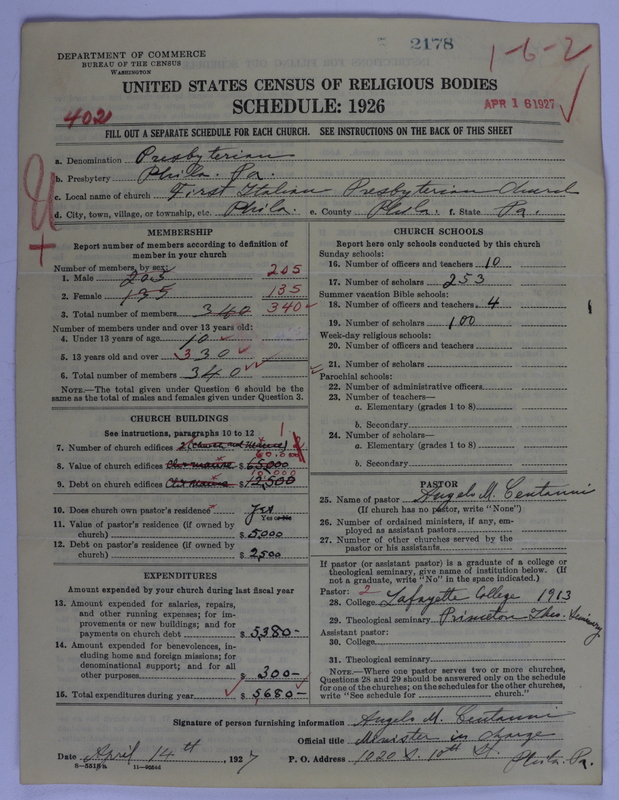 2178
1-6-2
DEPARTMENT OF COMMERCE
BUREAU OF THE CENSUS
WASHINGTON
UNITED STATES CENSUS OF RELIGIOUS BODIES
SCHEDULE: 1926
APR 16 1927
402
FILL OUT A SEPARATE SCHEDULE FOR EACH CHURCH. SEE INSTRUCTIONS ON THE BACK OF THIS SHEET
a. Denomination Presbyterian
b. Presbytery Phila. Pa.
c. Local name of church First Italian Presbyterian Church
d. City, town, village, or township, etc. Phila. e. County Phila. f. State Pa.
MEMBERSHIP
Report number of members according to definition of
member in your church
Number of members, by sex:
1. Male 205 205
2. Female 135 135
3. Total number of members 340 340
Number of members under and over 13 years old:
4. Under 13 years of age 10
5. 13 years old and over 330
6. Total number of members 340
NOTE.—The total given under Question 6 should be the
same as the total of males and females given under Question 3.
CHURCH BUILDINGS
See instructions, paragraphs 10 to 12
7. Number of church edifices 2 (Church and Manse) 1
8. Value of church edifices $ 65,000 60,000
9. Debt on church edifices $ 12,500 10,000
10. Does church own pastor's residence? Yes
Yes or No
11. Value of pastor's residence (if owned by
church) $ 5,000
12. Debt on pastor's residence (if owned by
church) $ 2,500
EXPENDITURES
Amount expended by your church during last fiscal year
13. Amount expended for salaries, repairs,
and other running expenses; for im-
provements or new buildings; and for
payments on church debt $ 5,380-
14. Amount expended for benevolences, in-
cluding home and foreign missions; for
denominational support; and for all
other purposes $ 300-
15. Total expenditures during year $ 5,680-
CHURCH SCHOOLS
Report here only schools conducted by this church
Sunday schools:
16. Number of officers and teachers 10
17. Number of scholars 253
Summer vacation Bible schools:
18. Number of officers and teachers 4
19. Number of scholars 100
Week-day religious schools:
20. Number of officers and teachers
21. Number of scholars
Parochial schools:
22. Number of administrative officers
23. Number of teachers—
a. Elementary (grades 1 to 8)
b. Secondary
24. Number of scholars—
a. Elementary (grades 1 to 8)
b. Secondary
PASTOR
25. Name of pastor Angelo M. Centanni
(If church has no pastor, write "None")
26. Number of ordained ministers, if any, em-
ployed as assistant pastors
27. Number of other churches served by the
pastor or his assistants
If pastor (or assistant pastor) is a graduate of a college or
theological seminary, give name of institution below. (If
not a graduate, write "No" in the space indicated.)
Pastor: 2
28. College Lafayette College 1913
29. Theological seminary Princeton Theo. Seminary
Assistant pastor:
30. College
31. Theological seminary
NOTE.—Where one pastor serves two or more churches,
Questions 28 and 29 should be answered only on the schedule
for one of the churches; on the schedules for the other churches,
write "See schedule for ............ church."
Signature of person furnishing information Angelo M. Centanni
Official title Minister in charge
Date April 14th, 1927 P. O. Address 1020 S. 10th St. Phila. Pa.